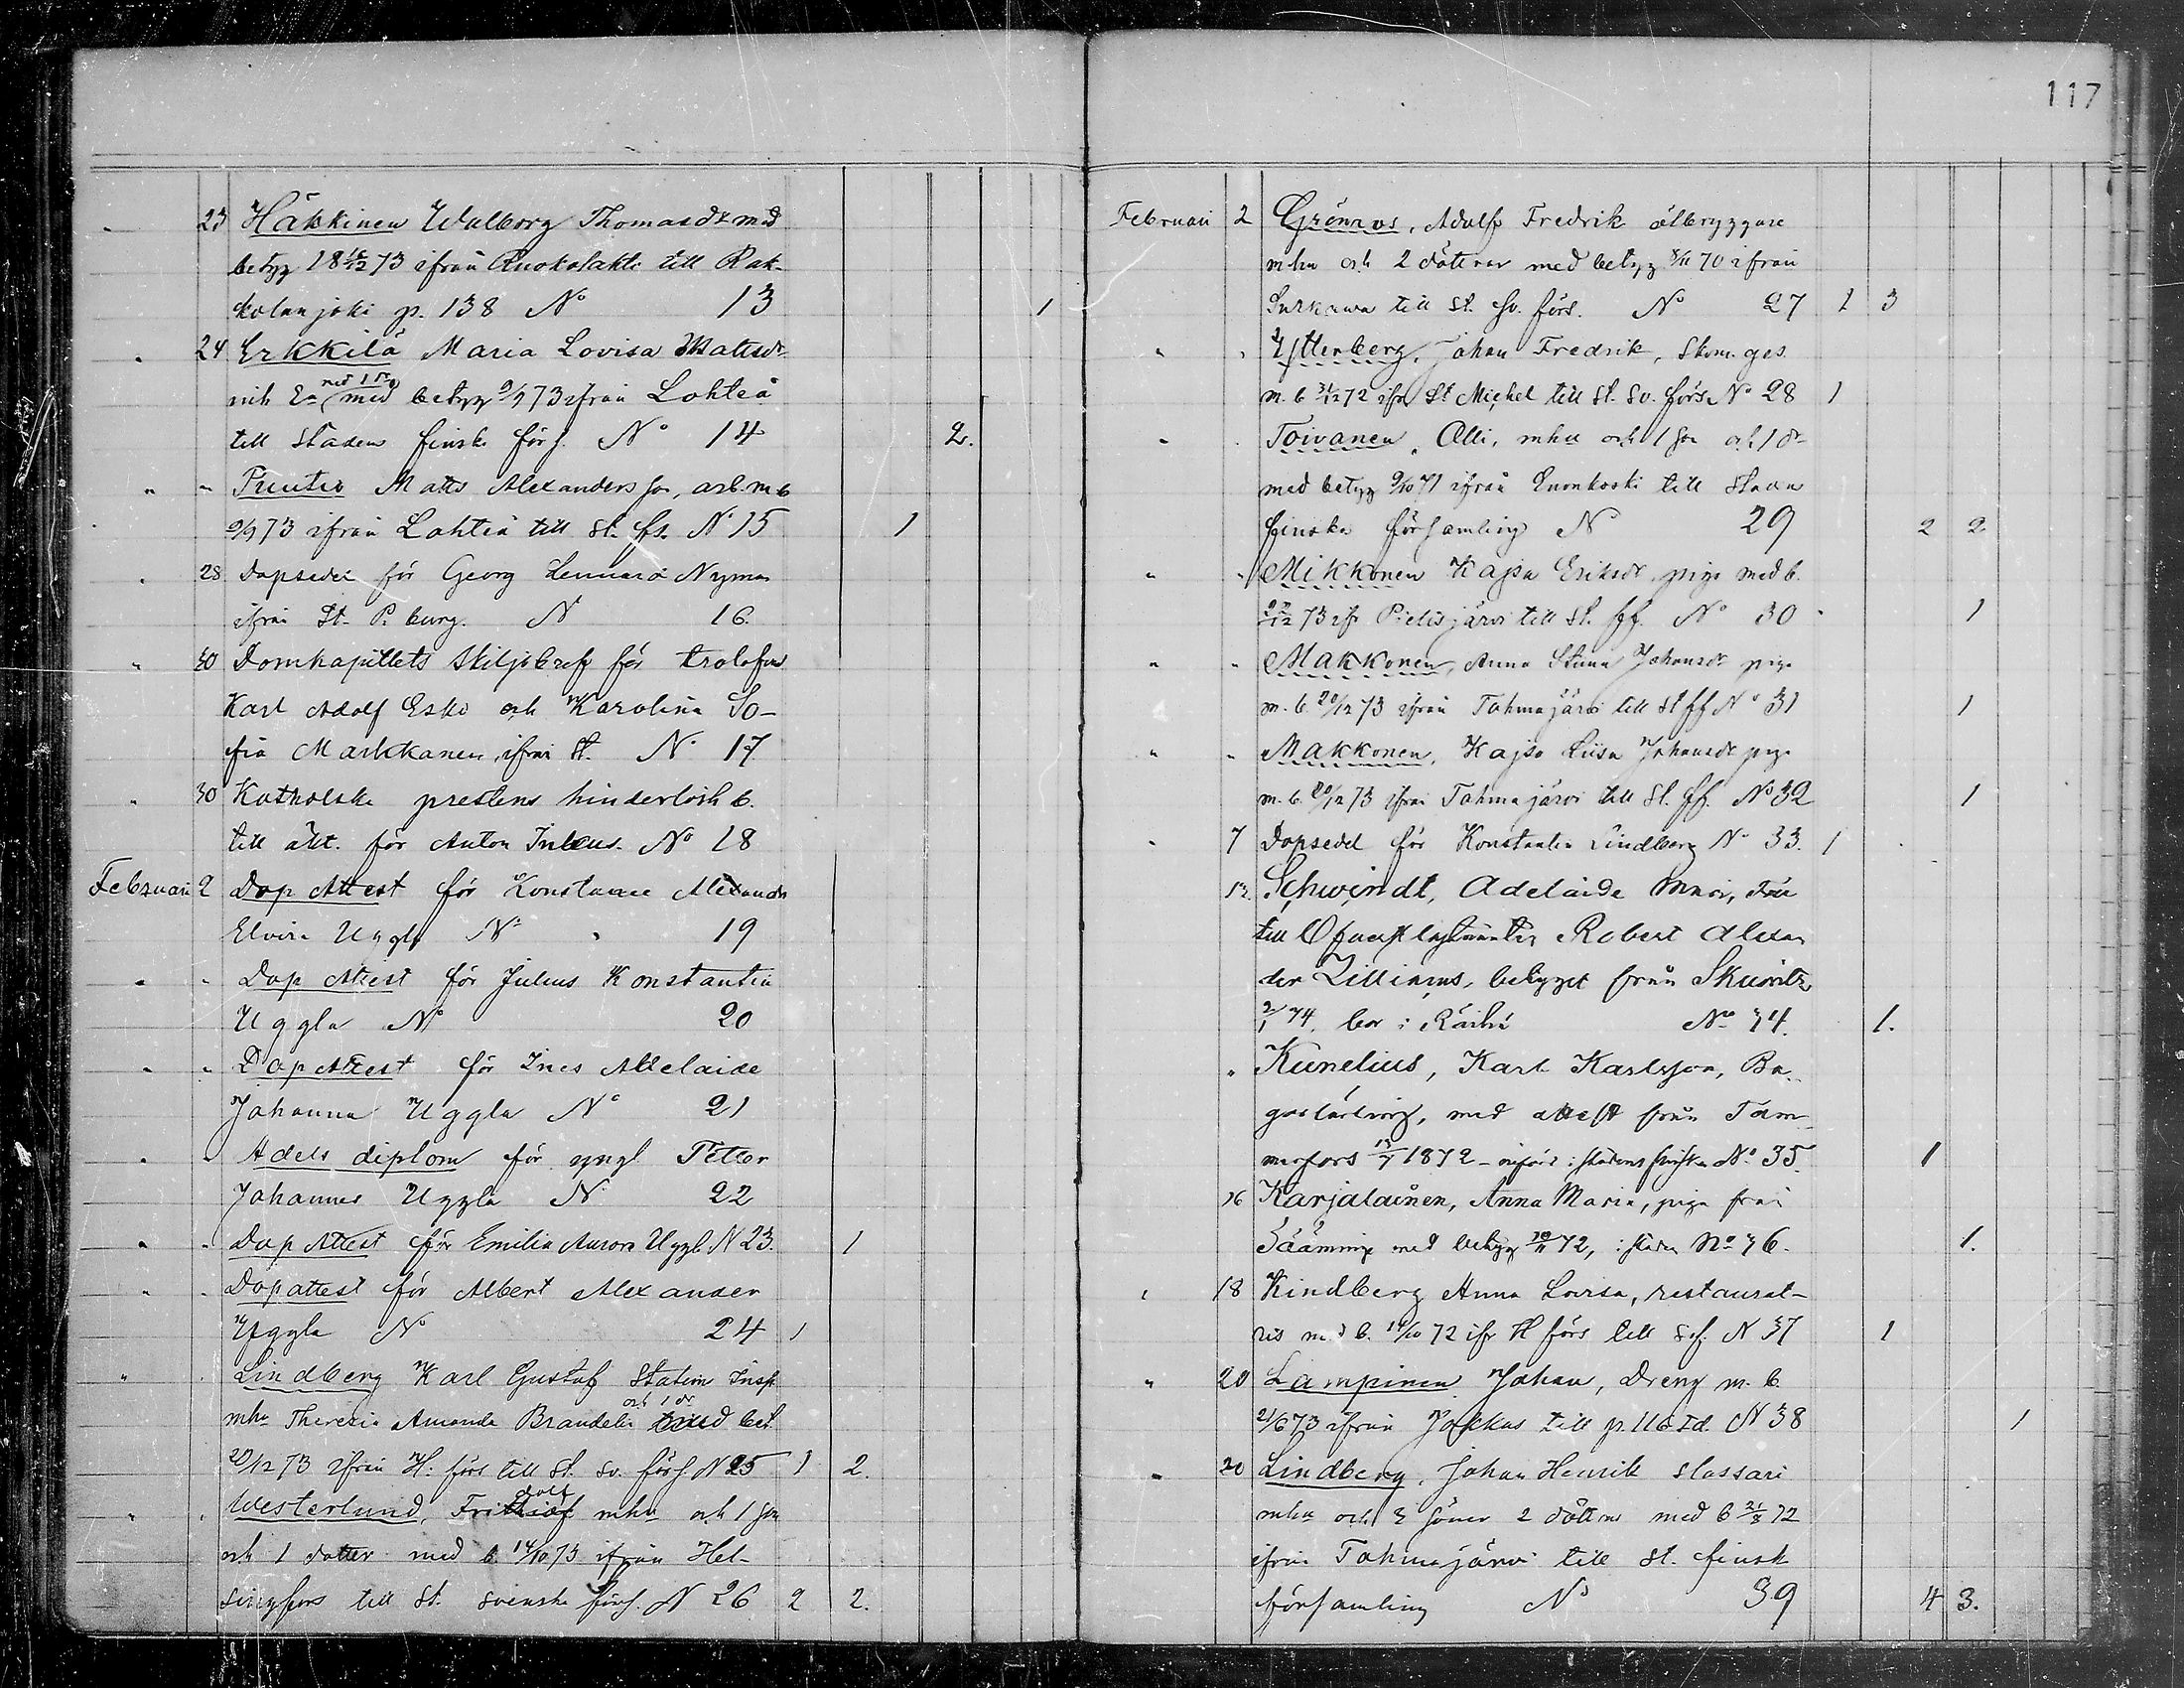 117
23 Häkkinen Walborg Thomasdr med
betyg 18 18/12 73 ifrån Ruokolakti till Rak-
kolanjoki p. 138 No 13 1
24 Erkkilä Maria Lovisa Mattsdr
med 1 dr
med betyg 9/9 73 ifrån Lohteå
till Stadens finska förs. No 14 2.
" " Puutio Matts Alexandersson, arb. m b
9/9 73 ifrån Lohteå till St. fs. No 15 1
" 28 Dopsedel för Georg Lennard Nyman
ifrån St. P. burg. N 16.
" 30 Domkapitlets Skiljobref för trolofvad
Karl Adolf Esko och Karolina So-
fia Markkanen, ifrån St. No 17
" 30 Katholske prestens hinderlösh b.
till äkt. för Anton No 18
Februari 2 Dop Attest för Konstance Alexandra
Elvira Uggla No 19
" " Dop Attest för Julius Konstantin
Uggla No 20
" " Dop Attest för Ines Adelaide
Johanna Uggla No 21
" " Adels diplom för yngl Petter
Johannes Uggla N 22
" " Dop Attest för Emilia Aurora Uggla N 23. 1
" " Dopattest för Albert Alexander
Uggla No 24 1
" " Lindberg Karl Gustaf Station Insp.
och 1 dr
mhu Theresia Amanda Brandelin med bet.
20/12 73 ifrån H: fors till St. Sv. förs. N 25 1 2.
dolf
" " Westerlund, Frithiof mhu och 1 son
och 1 dotter med b. 14/10 73 ifrån Hel-
singfors till St. svenska förs. N 26 2 2.
Februari 2 Grönroos, Adolf Fredrik ölbryggare
mhu och 2 döttrar med betyg 8/11 70 ifrån
Sulkava till St. Sv. förs. No 27 1 3
" " Ytterberg, Johan Fredrik, Skom. ges.
m. b 31/12 72 ifrn St Michel till St. Sv. förs. No 28 1
" " Toivanen, Olli, mhu och 1 son och 1 dr
med betyg 9/10 71 ifrån Enonkoski till Staden
finska församling No 29 2 2
" " Mikkonen Kajsa Eriksdr piga med b.
22/12 73 ifr Pielisjärvi till St. ff. No 30 1
" " Makkonen, Anna Stina Johansdr piga
m. b. 20/12 73 ifrån Tohmajärvi till St ff No 31 1
" " Makkonen, Kajsa Liisa Johansdr piga
m. b. 20/12 73 ifrån Tohmajärvi till St. ff. No 32 1
" 7 Dopsedel för Konstantin Lindberg N 33. 1
12. Schwindt, Adelaide Maria, Fru
till Robert Alexan
der Zilliacus, betyget från Skuoritz
2/1 74. bor i Räihä No 34. 1.
" Kunelius, Karl Karlsson, Ba-
garlärling, med attest från Tam-
merfors 13/7 1872 - införd i stadens finska No 35. 1
16 Karjalainen, Anna Maria, piga från
Sääminge med betyg 30/11 72, i staden No 36. 1.
" 18 Kindberg Anna Lovisa, restaurat-
ris med b. 14/10 72 ifr H fors till Svf. N 37 1
" 20 Lampinen Johan, Dreng m. b.
21/6 73 ifrån Jokkas till p. 116 Td. N 38 1
" 20 Lindberg, Johan Henrik Slassari
mhu och 3 söner 2 döttrar med b 21/8 72
ifrån Tohmajärvi till St. finsk
församling No 39 4 3.